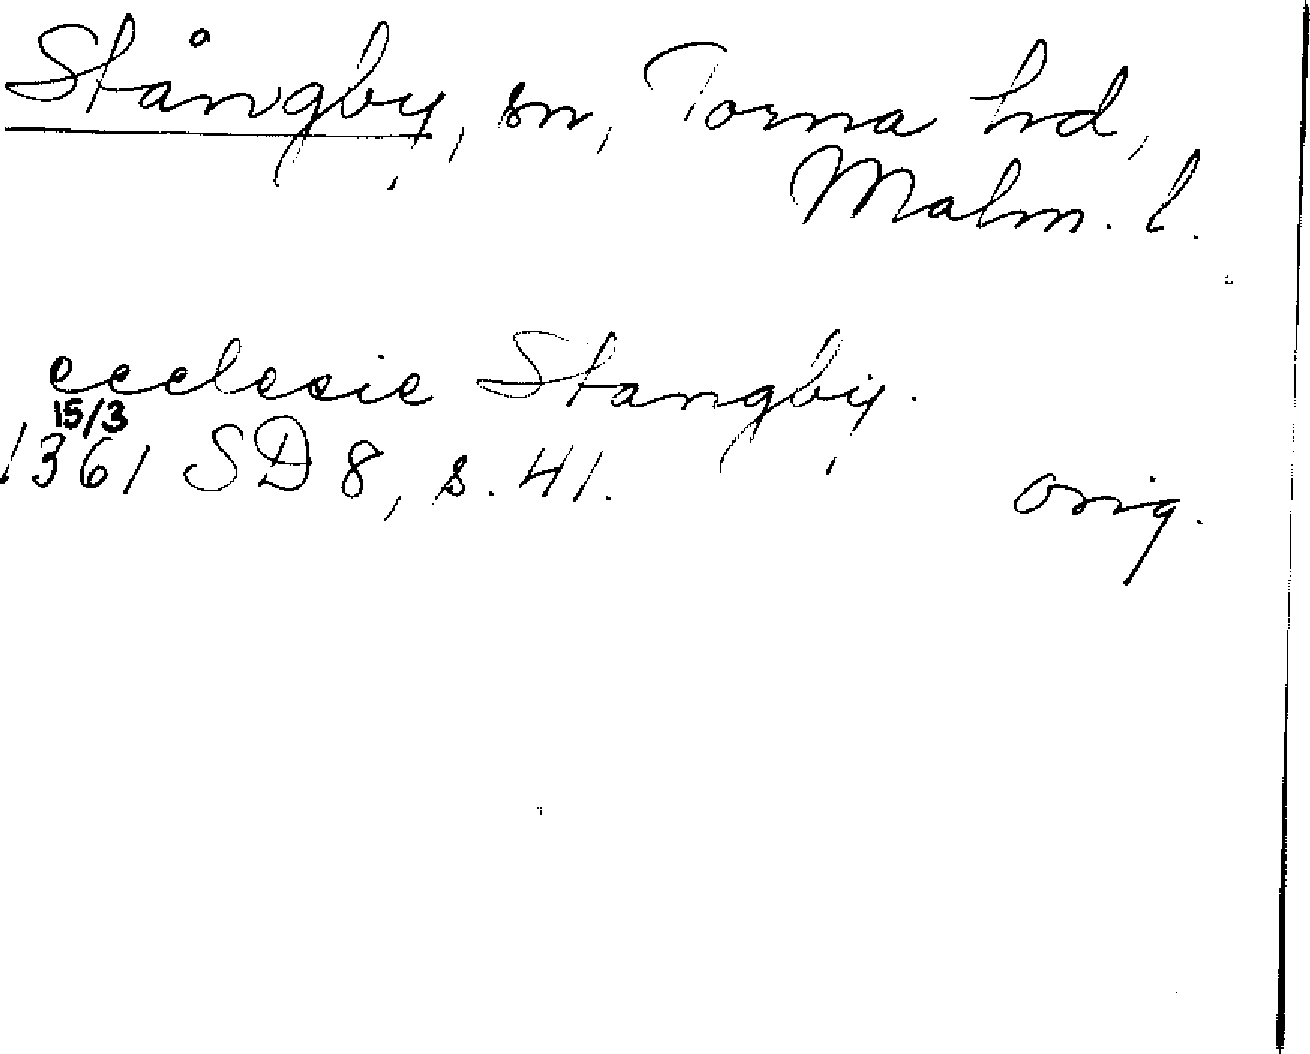 Stångby, sn, Torna hd,
Malm. l.
ecclesie Stangby.
15/3
1361 SD 8, s. 41.
orig.